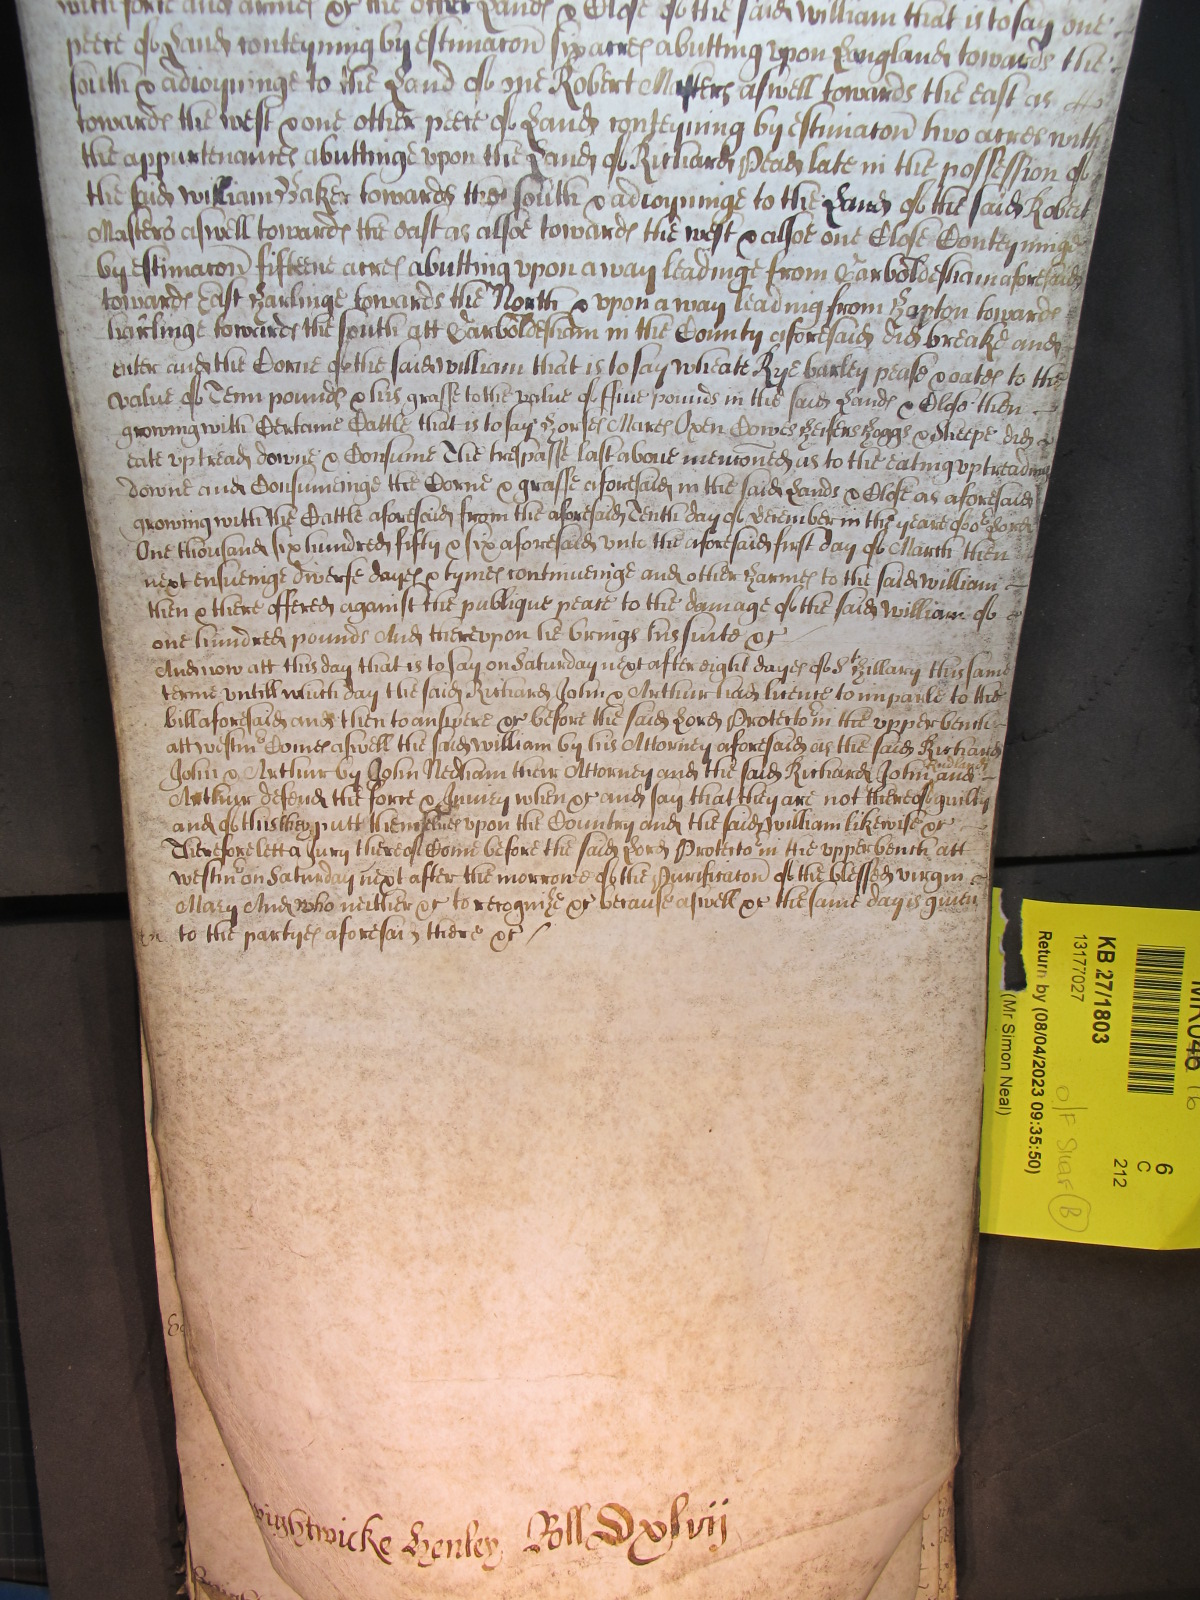 with force and armes &c the other Lands & Close of the said William that is to say one
peece of Land conteyning by estimacon six acres abutting upon Longlande towards the
south & adioyninge to the Land of one Robert Masters aswell towards the east as
towards the west & one other peece of Land conteyning by estimacon two acres with
the appurtenances abuttinge upon the Land of Richard Read late in the possession of
the said William Baker towards the south & adioyninge to the Land of the said Robert
Masters aswell towards the East as alsoe towards the west & alsoe one Close Conteyninge
by estimacon fifteene acres abutting upon a way leadinge from Garboldesham aforesaid
towards East Harlinge towards the North & upon a way leading from Hapton towards
harlinge towards the south att Garboldesham in the County aforesaid did breake and
enter and the Corne of the said William that is to say wheate Rye barley pease & oates to the
value of Tenn pounds & his grasse to the value of ffive pounds in the said Lands & Close then
growing with Certaine Cattle that is to say Horses Mares Oxen Cowes Heifers Hoggs & Sheepe did
eate up tread downe & Consume The trespasse last above menconed as to the eating up treading
downe and Consumeinge the Corne & grasse aforesaid in the said Lands & Close as aforesaid
growing with the Cattle aforesaid from the aforesaid Tenth day of December in the yeare of or Lord
One thousand six hundred fifty & six aforesaid unto the aforesaid first day of March then
next ensueinge diverse dayes & tymes continueinge and other Harmes to the said William
then & there offered against the publique peace to the damage of the said William of
one hundred pounds And thereupon he brings his suite &c
And now att this day that is to say on Saturday next after eight dayes of St Hillary this same
terme untill which day the said Richard John & Arthur had licence to imparle to the
bill aforesaid and then to answere &c before the said Lord Protector in the upper bench
att westmr Comes aswell the said William by his Attorney aforesaid as the said Richard
John & Arthur by John Nedham their Attorney and the said Richard John and
Arthur defend the force & Iniury when &c and say that they are not thereof guilty
and of this they putt themselves upon the Country and the said William likewise &c
Therefore lett a Jury thereof Come before the said Lord Protector in the upper bench att
westmr on Saturday next after the morrowe of the Purificacon of the blessed virgin
Mary And who neither &c to recognize &c because aswell &c the same day is given
to the partyes aforesaid there &c
wightwicke Henley Roll Dxlvij
KB 27/1803
13177027
Return by (08/04/2023 09:35:50)
(Mr Simon Neal)
6
C
212
O/F Shelf B